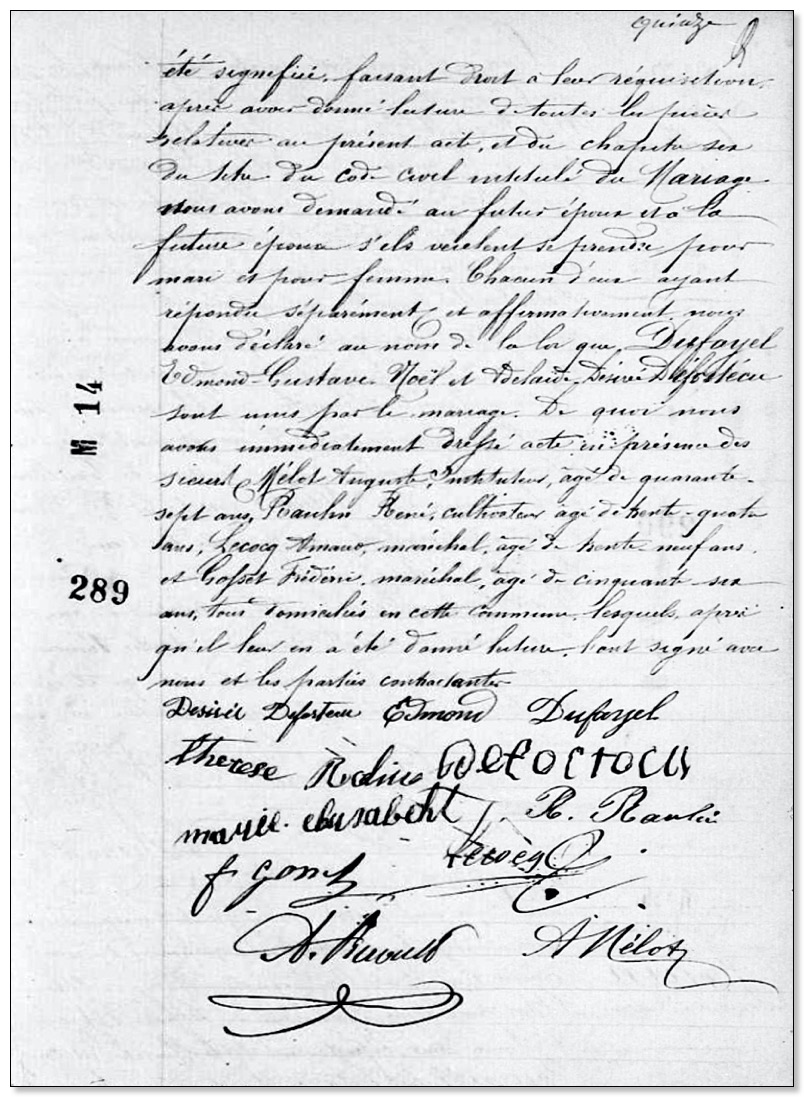 quinze
été signifiée, faisant droit à leur réquisition,
après avoir donné lecture de toutes les pièces
relatives au présent acte, et du chapitre six
du titre du code civil intitulé du Mariage
nous avons demandé au futur époux et à la
future épouse s'ils veulent se prendre pour
mari et pour femme. Chacun d'eux ayant
répondu séparément et affirmativement, nous
avons déclaré au nom de la loi que Dufayel
Edmond-Gustave-Noël et Adelaïde Désirée Deforteau
sont unis par le mariage. De quoi nous
avons immédiatement dressé acte en présence des
sieurs Mélot Auguste, Instituteur, âgé de quarante-
sept ans, Raulin René, cultivateur âgé de trente-quatre
ans, Lecocq Amand, maréchal, âgé de trente neuf ans,
et Gosset Frédéric, maréchal, âgé de cinquante-six
ans, tous domiciliés en cette commune, lesquels, après
qu'il leur en a été donné lecture, l'ont signé avec
nous et les parties contractantes
M 14
289
Désirée Deforteau Edmond Dufayel
therese Delocroche
marie elisabeht R. Raulin
Lecocq
A Mélot